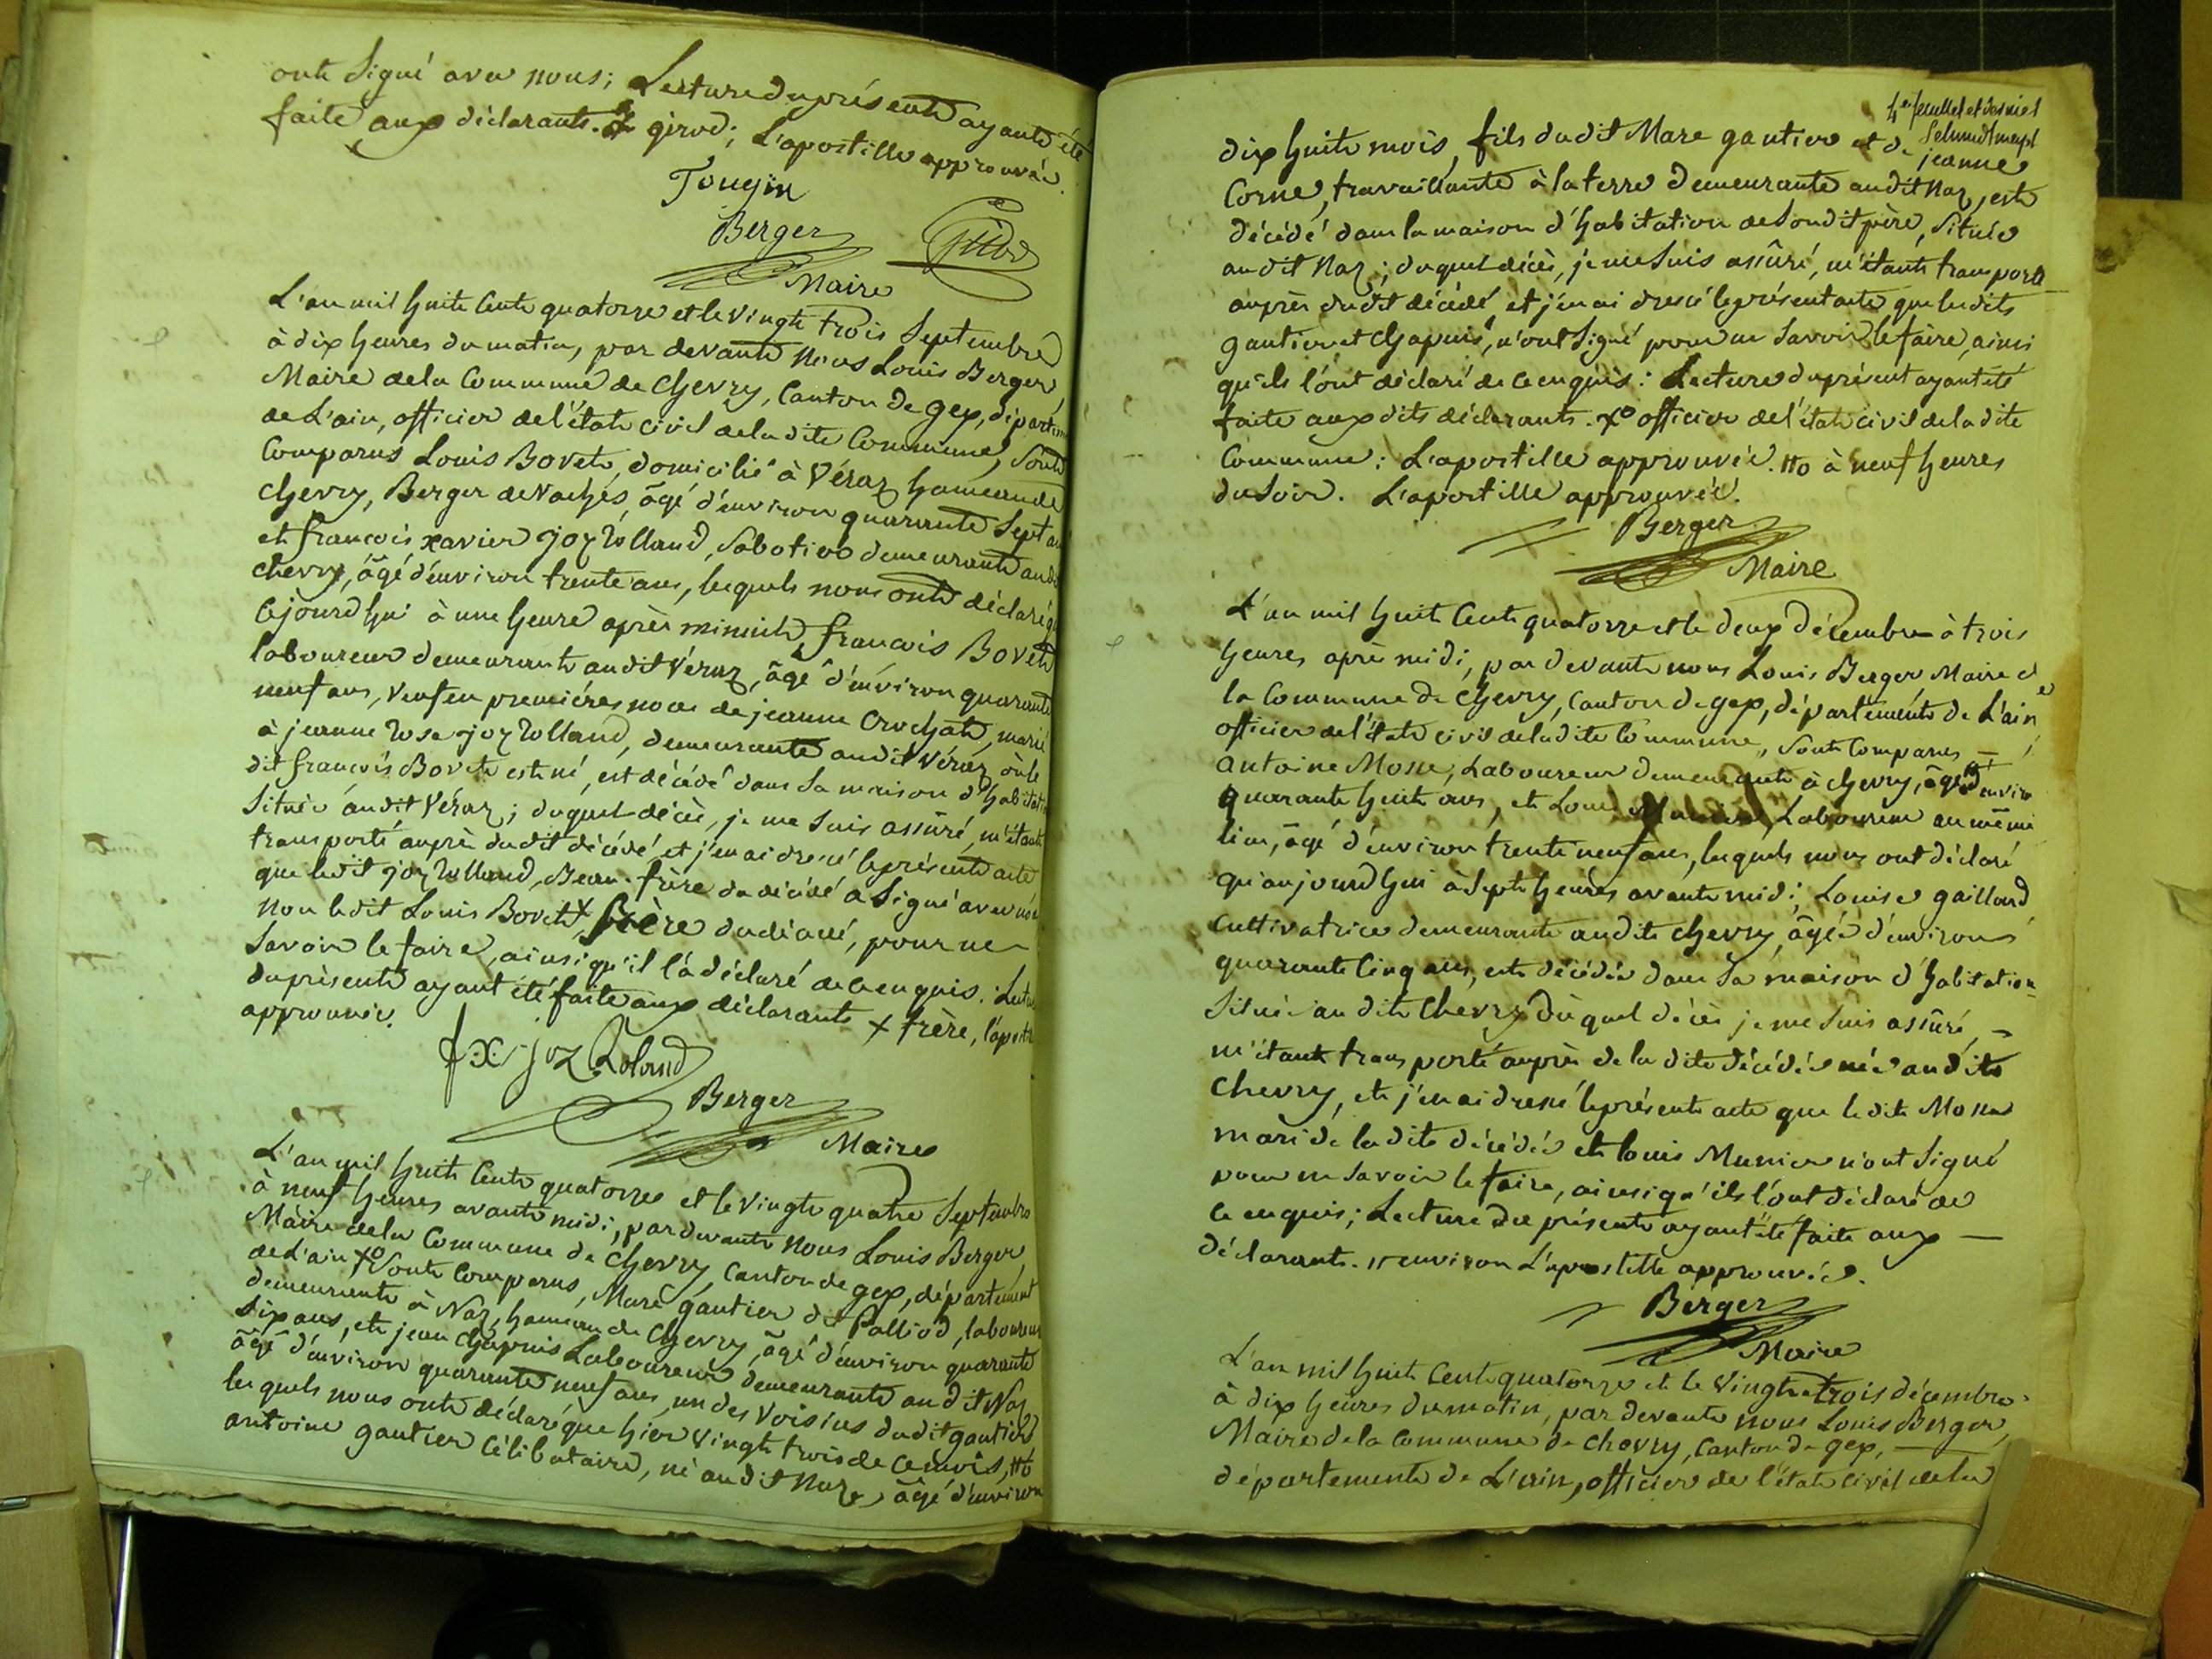 onte signé avec nous; Lecture du présente ayante été
faite aux déclarants. girod; L'apostille approuvée.
Tougin
Berger
Maire
L'an mil huite Cente quatorze et le vingte trois Septembre
à dix heures du matin, par devante Nous Louis Berger,
Maire dela Commune de Chevry, Canton de gex, départem
de L'ain, officier del'état Civil deladite Commune, Sonte
Comparus Louis Bovete, domicilié à Véraz hameau de
chevry, Berger devaches, âgé d'environ quarante Sept an
et françois xavier joz Rolland, Sabotier demeurante audi
chevry, âgé d'environ trente ans, lesquels nous onte déclaré q
Cejourdhui à une heure après minuite, françois Bovete
laboureur demeurante audit Véraz, âgé d'environ quarante
neuf ans, veuf en premières noces de jeanne Crochate, marié
à jeanne Rose joz Rolland, demeurante audit Véraz, où le
dit françois Bovete est né, est décédé dans Sa maison d'habitati
Située audit Véraz; duquel décès, je me Suis assûré, m'étante
transporté auprès dudit décédé et j'en ai dressé leprésente acte
que ledit joz Rolland, Beau-frère du décédé a Signé avec nous
Non ledit Louis Bovete x frère dudécédé, pour ne
Savoir le faire, ainsi qu'il l'a déclaré de ce enquis. Lectu
duprésente ayant été faite aux déclarants x frère, l'apostil
approuvée.
fx joz Roland
Berger
Maire
L'an mil huite Cente quatorze et le vingte quatre Septembre
à neuf heures avante midi, par devante Nous Louis Berger,
Maire dela Commune de Chevry, Canton de gex, département
deL'ain xo Sonte Comparus, Marc gautier de Palliod, laboureur
demeurante à Naz, hameau de Chevry, âgé d'environ quarante
Six ans, ete jean Chapuis Laboureur demeurante audit Naz
âgé d'environ quarante neuf ans, un des Voisins dudit gautier
lesquels nous onte déclaré que hier vingte trois de Cemois, #o
antoine gautier Célibataire, né audit Naz, âgé d'environ
4e feuillet et dernier
dix huite mois, fils dudit Marc gautier et de jeanne
Corne, travaillante à la terre demeurante audit Naz, este
décédé dans la maison d'habitation deSondit père, Située
audit Naz; duquel décès, je me Suis assûré, m'étante transporté
auprès dudit décédé, et j'en ai dressé leprésent acte que lesdits
gautier et Chapuis, n'ont Signé pour ne Savoir le faire, ainsi
qu'ils l'ont déclaré de ce enquis: Lecture duprésent ayant été
faite aux dits déclarants. xo officier del'état civil deladite
Commune: L'apostille approuvée. #o à neuf heures
du Soir. L'apostille approuvée.
Berger
Maire
L'an mil huit Cente quatorze et le deux décembre à trois
heures après midi, par devante nous Louis Berger Maire de
la Commune de Chevry, Canton de gex, départemente de L'ain
officier del'état civil deladite Commune, Sonte Comparus
antoine Mosse, Laboureur demeurante à chevry, âgé d'enviro
quarante huite ans, ete Louis Munier, Laboureur au même
lieu, âgé d'environ trente neuf ans, lesquels nous ont déclaré
qu'aujourdhui à Septe heures avante midi, Louise gaillard
Cultivatrice demeurante audite chevry, âgée d'environ
quarante Cinq ans, este décédée dans Sa maison d'habitation
Située audite Chevry, duquel décès je me Suis assûré,
m'étante transporté auprès de la dite décédée née audite
Chevry, ete j'en ai dressé leprésente acte que ledite Mosse
mari de ladite décédée ete louis Munier n'ont Signé
pour ne Savoir le faire, ainsi qu'ils l'ont déclaré de
ce enquis; Lecture du présente ayant été faite aux
déclarants. environ L'apostille approuvée.
Berger
Maire
L'an mil huite Cente quatorze ete le Vingte trois décembre
à dix heures du matin, par devante nous Louis Berger,
Maire de la Commune de Chevry, Canton de gex,
départemente de L'ain, officier de l'état civil dela